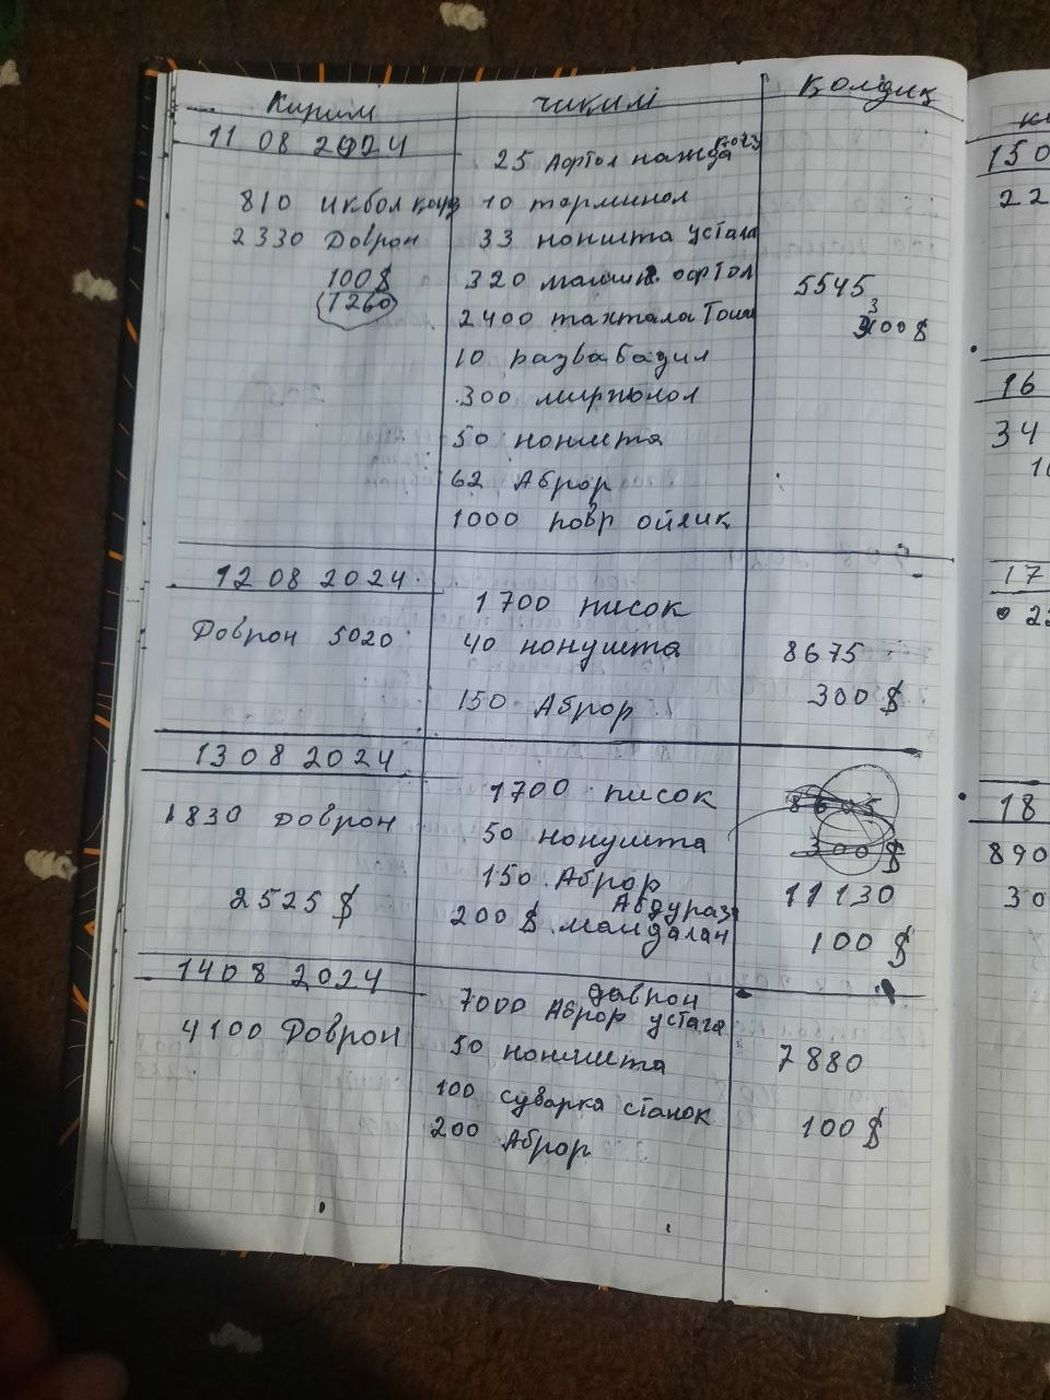 Кирим чиқим Қолдиқ
11 08 2024
25 Асфтол нажда
810 Икбол 10 терминол
2330 Доврон 33 ноништа устага
100$ 320 машина асфтол 5545
(1260) 2400 тахтала Тоши 3100$
10 разва бадил
300 миржолол
50 ноништа
62 Аброр
1000 повр ойлик
12 08 2024
1700 писок
Доврон 5020 40 нонушта 8675
150 Аброр 300$
13 08 2024
1700 писок
1830 Доврон 50 нонушта
300$
150 Аброр 11130
2525$ 200$ Абдураз
майдалан 100$
14 08 2024
7000 даврон
Аброр устага
4100 Доврон 50 ноништа 7880
100 суварка станок 100$
200 Аброр
150
22
16
34
17
18
890
30